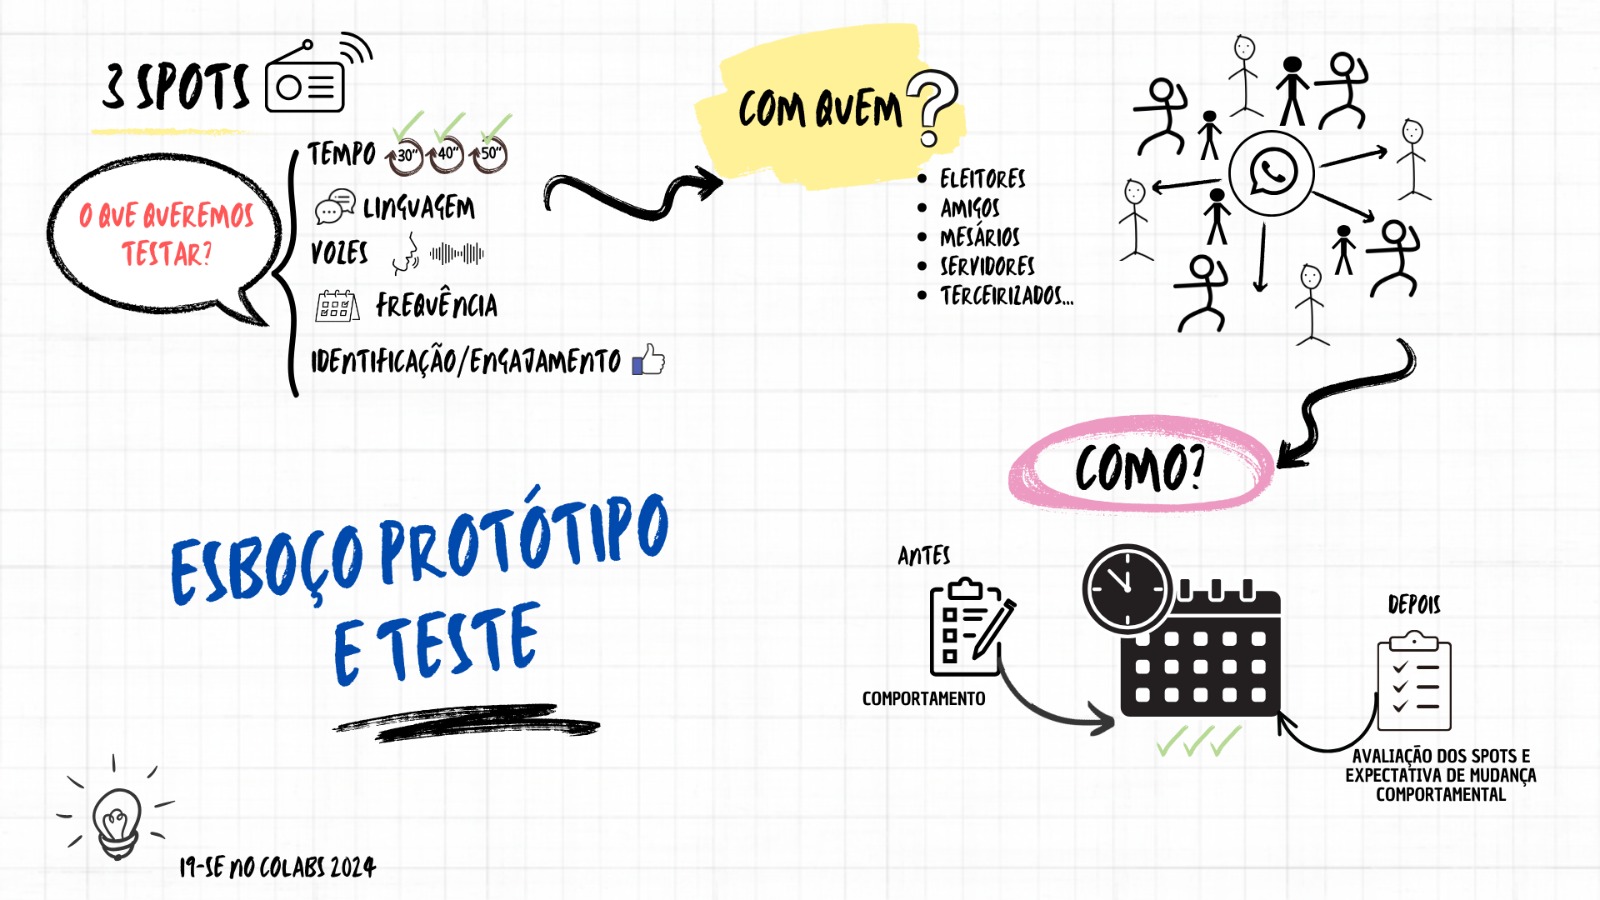 3 SPOTS
O QUE QUEREMOS
TESTAR?
TEMPO 30" 40" 50"
LINGUAGEM
VOZES
FREQUÊNCIA
IDENTIFICAÇÃO/ENGAJAMENTO
COM QUEM?
• ELEITORES
• AMIGOS
• MESÁRIOS
• SERVIDORES
• TERCEIRIZADOS...
COMO?
ANTES
COMPORTAMENTO
DEPOIS
AVALIAÇÃO DOS SPOTS E
EXPECTATIVA DE MUDANÇA
COMPORTAMENTAL
ESBOÇO PROTÓTIPO
E TESTE
19-SE NO COLABS 2024